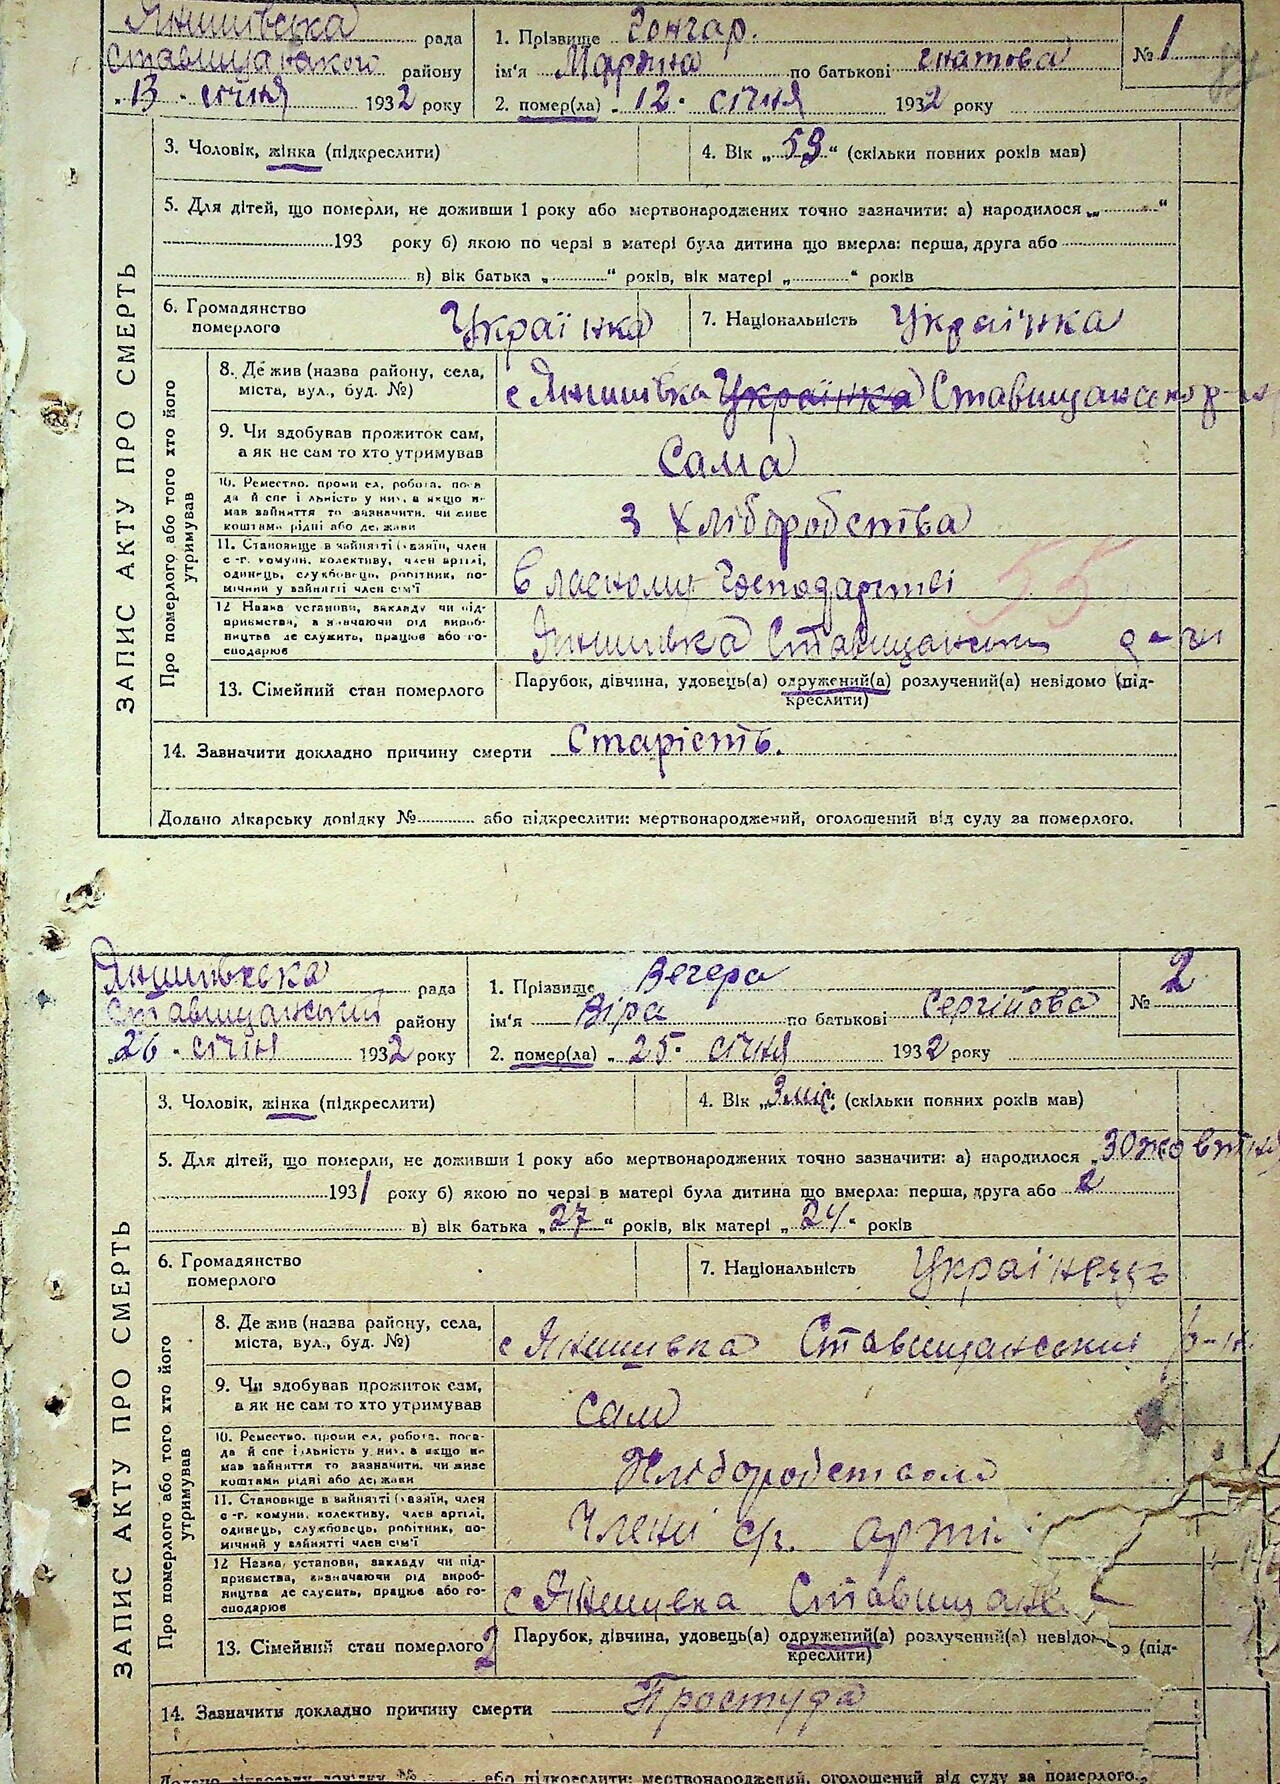 Янишівська рада
Ставищанського району
„13" січня 1932 року
1. Прізвище Гончар.
ім'я Марина по батькові Гнатова
2. помер(ла) „12" січня 1932 року
№ 1
3. Чоловік, жінка (підкреслити)
4. Вік „59" (скільки повних років мав)
5. Для дітей, що померли, не доживши 1 року або мертвонароджених точно зазначити: а) народилося „ "
193 року б) якою по черзі в матері була дитина що вмерла: перша, друга або
в) вік батька „ " років, вік матері „ " років
6. Громадянство померлого Українка
7. Національність Українка
ЗАПИС АКТУ ПРО СМЕРТЬ
Про померлого або того хто його утримував
8. Де жив (назва району, села,
міста, вул., буд. №)
с Янишівка Українка Ставищанського р-ну
9. Чи здобував прожиток сам,
а як не сам то хто утримував
Сама
10. Ремество, промисел, робота, поса-
да й спеціяльність у них, а якщо не
мав зайняття то зазначити, чи живе
коштами рідні або держави
З Хліборобства
11. Становище в зайнятті (хазяїн, член
с.-г. комуни, колективу, член артілі,
одинець, службовець, робітник, по-
мічний у зайнятті член сім'ї
В ласному господарстві
55
12 Назва установи, закладу чи під-
приємства, зазначаючи рід вироб-
ництва де служить, працює або го-
сподарює
Янишівка Ставищанськи
13. Сімейний стан померлого
Парубок, дівчина, удовець(а) одружений(а) розлучений(а) невідомо (під-
креслити)
14. Зазначити докладно причину смерти Старість.
Додано лікарську довідку № або підкреслити: мертвонароджений, оголошений від суду за померлого.
Янишівська рада
Ставищанський району
„26" січня 1932 року
1. Прізвище Вечера
ім'я Віра по батькові Сергійова
2. помер(ла) „25" січня 1932 року
№ 2
3. Чоловік, жінка (підкреслити)
4. Вік „3 міс." (скільки повних років мав)
5. Для дітей, що померли, не доживши 1 року або мертвонароджених точно зазначити: а) народилося „30 жовтня
1931 року б) якою по черзі в матері була дитина що вмерла: перша, друга або 2
в) вік батька „27" років, вік матері „24" років
6. Громадянство
померлого
7. Національність Українець
ЗАПИС АКТУ ПРО СМЕРТЬ
Про померлого або того хто його утримував
8. Де жив (назва району, села,
міста, вул., буд. №)
с Янишивка Ставищанський р-н
9. Чи здобував прожиток сам,
а як не сам то хто утримував
сам
10. Ремество, промисел, робота, поса-
да й спеціяльність у них, а якщо не
мав зайняття то зазначити, чи живе
коштами рідні або держави
Хліборобством
11. Становище в зайнятті (хазяїн, член
с.-г. комуни, колективу, член артілі,
одинець, службовець, робітник, по-
мічний у зайнятті член сім'ї
Члени с/г. арті
12 Назва установи, закладу чи під-
приємства, зазначаючи рід вироб-
ництва де служить, працює або го-
сподарює
с Янишивка Ставищанс
13. Сімейний стан померлого 2
Парубок, дівчина, удовець(а) одружений(а) розлучений(а) невідомо (під-
креслити)
14. Зазначити докладно причину смерти Простуда
Додано лікарську довідку № або підкреслити: мертвонароджений, оголошений від суду за померлого.